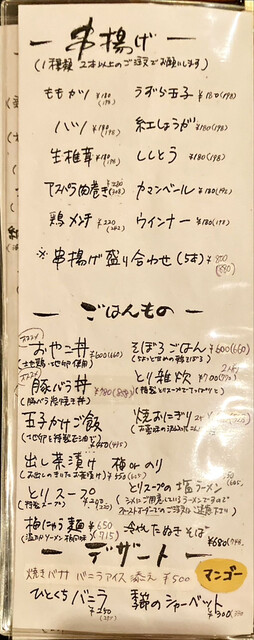 串揚げ
(1種類 2本以上のご注文でお願いします)
ももかつ ¥180 (198)
うずら玉子 ¥180 (198)
ハツ ¥180 (198)
紅しょうが ¥180 (198)
生椎茸 ¥180 (198)
ししとう ¥180 (198)
アスパラ肉巻き ¥280 (308)
カマンベール ¥180 (198)
鶏メンチ ¥220 (242)
ウインナー ¥180 (198)
※ 串揚げ盛り合わせ (5本) ¥800 (880)
ごはんもの
おやこ丼 ¥600 (660)
そぼろごはん ¥600 (660)
豚バラ丼 ¥780 (858)
とり雑炊 ¥700 (770)
玉子かけご飯
焼おにぎり
出し茶漬け 梅orのり
とりスープ
(特製スープ)
とりスープの塩ラーメン
梅にゅう麺 ¥650 (¥715)
冷やしたぬきそば ¥680 (748)
デザート
焼きバナナ バニラアイス添え ¥500
マンゴー
ひとくちバニラ
季節のシャーベット ¥300 (330)